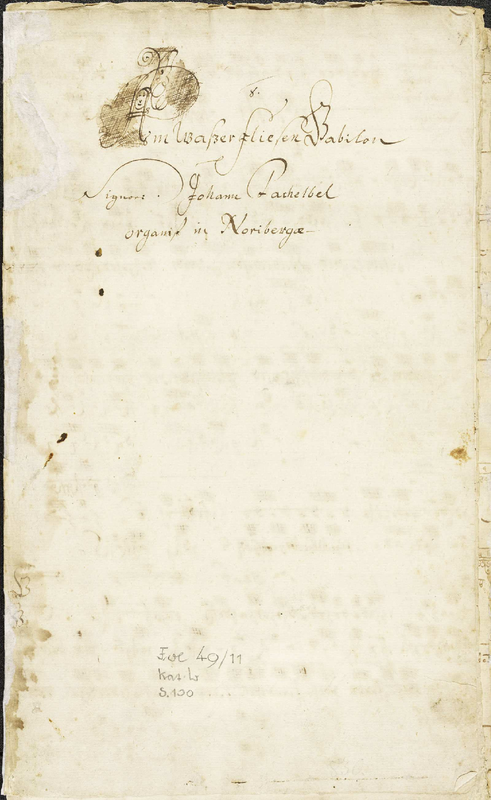 8.
Am Waßer fliesen Babilon
Signore. Johann Pachelbel
organis in Noribergæ
Fol 49/11
Kat. b
S. 100